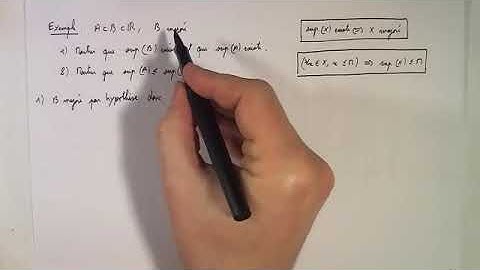 Exemple A ⊂ B ⊂ ℝ, B majoré
1) Montrer que sup (B) existe et que sup (A) existe.
2) Montrer que sup (A) ≤ sup (
1) B majoré par hypothèse donc
sup (X) existe ⇔ X majoré
(∀x ∈ X, x ≤ M) ⇒ sup (X) ≤ M